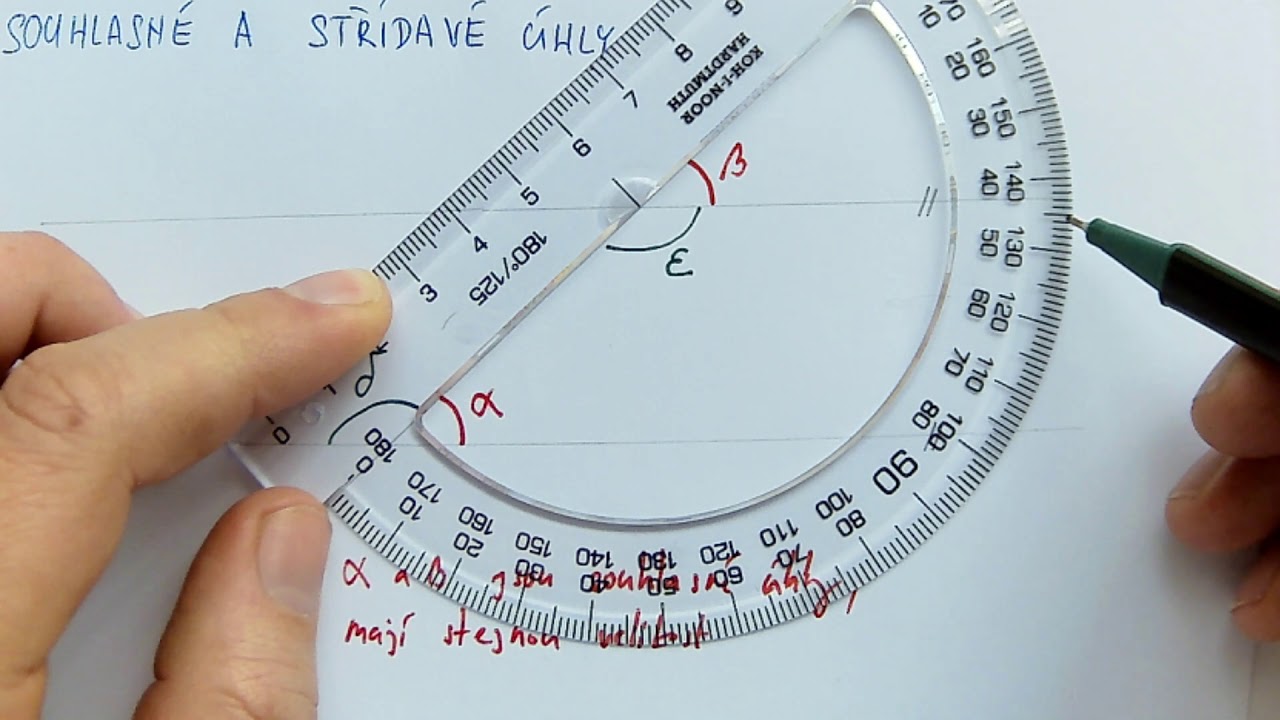 SOUHLASNÉ A STŘÍDAVÉ ÚHLY
9
8
7
6
5
4
3
0
KOH-I-NOOR
HARDTMUTH
180°/125
β
ε
α
170 160 150 140 130 120 110 100 90 80 70 60 50 40 30 20 10 0
10 20 30 40 50 60 70 80 100 110 120 130 140 150 160 170 180
α a β jsou souhlasné úhly,
mají stejnou velikost